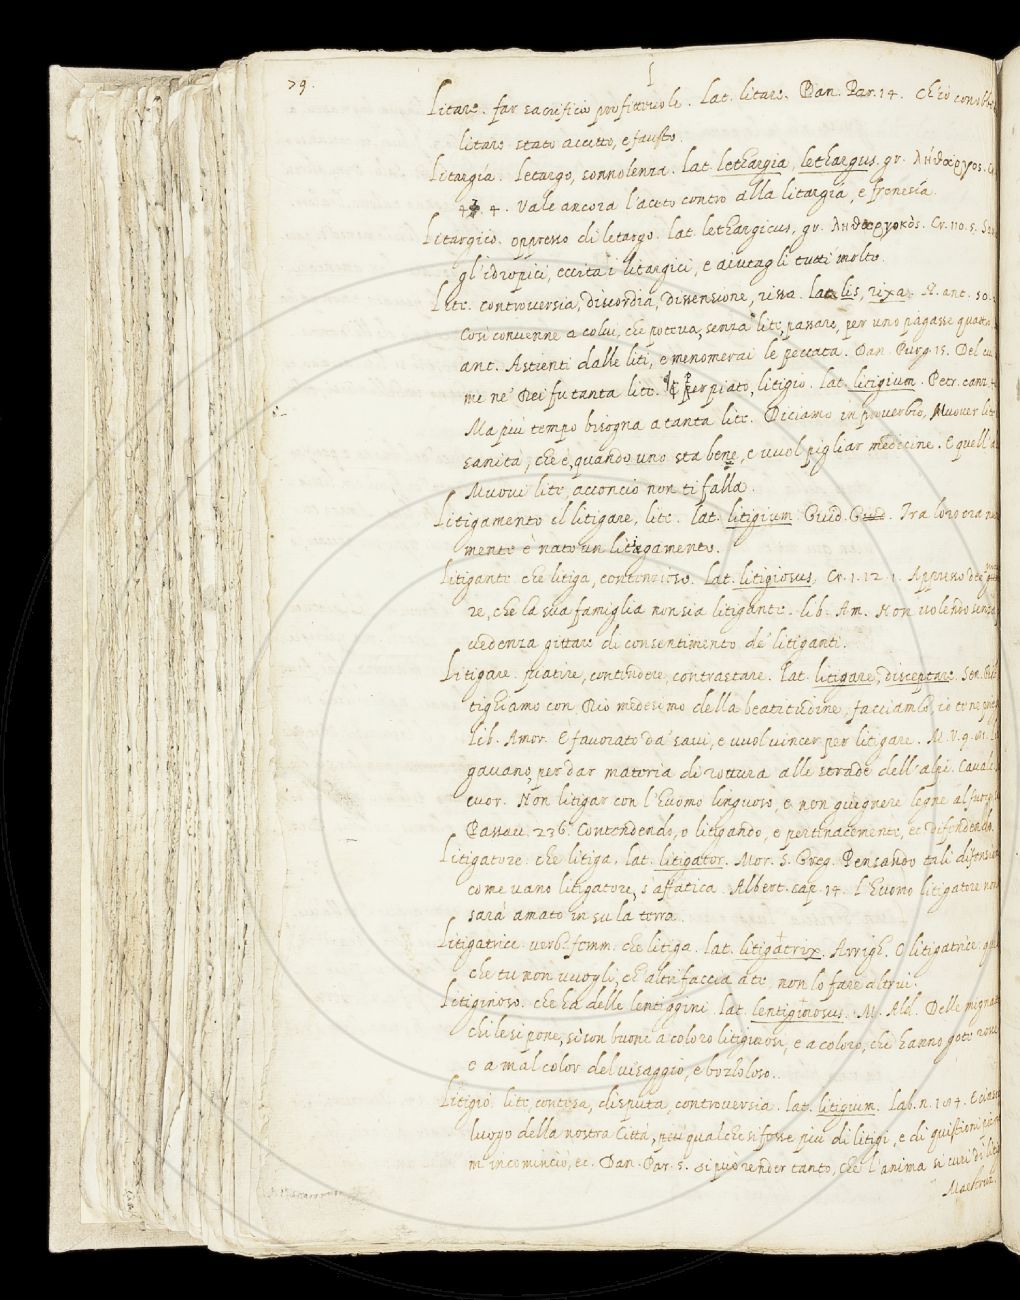 79.
L
Litare. far sacrificio profittevole. Lat. litare. Dan. Par. 14. Ch'io conobbi
litare stato accetto, e fausto.
Litargia. letargo, sonnolenza. Lat. lethargia, lethargus. gr. λήθαργος. Cr.
4. 4. Vale ancora l'aceto contro alla litargia, e frenesia.
Litargico. oppresso di letargo. Lat. lethargicus, gr. ληθαργικὸς. Cr. 110. 5.
gl'idropici, eccita i litargici, e aiutagli tutti molto.
Lite. controversia, discordia, dissensione, rissa. Lat. lis, rixa. N. ant. 50.
Così convenne a colui, che poteva, senza lite, passare, per uno pagasse quattro
ant. Astienti dalle liti, e menomerai le peccata. Dan. Purg. 15. Del cui
me ne' Dei fu tanta lite. ¶ Per piato, litigio. Lat. litigium. Petr. canz.
Ma più tempo bisogna a tanta lite. Diciamo in proverbio, Muover lite
sanità, che è, quando uno sta bene, e vuol pigliar medicine. E quell'a
Muovi lite, acconcio non ti falla.
Litigamento il litigare, lite. Lat. litigium. Guid. Giud. Tra loro era
mente è nato un litigamento.
Litigante. che litiga, contenzioso. Lat. litigiosus. Cr. 1. 12. 1. Appresso dee
re, che la sua famiglia non sia litigante. lib. Am. Non volendo senza
vedenza gittare di consentimento de' litiganti.
Litigare. piatire, contendere, contrastare. Lat. litigare, disceptare. Sen.
tighiamo con Dio medesimo della beatitudine, facciamlo, io te ne prie
Lib. Amor. È favorato da' savi, e vuol vincer per litigare. M. V. 9. 61.
gavano, per dar materia di rottura alle strade dell'alpi. Caval.
cuor. Non litigar con l'Huomo linguoso, e non giugnere legne al fuoco.
Passav. 236. Contendendo, o litigando, e pertinacemente, ec. difendendo.
Litigatore. che litiga. Lat. litigator. Mor. S. Greg. Pensando tali difensio
come vano litigatore, s'affatica. Albert. cap. 14. l'Huomo litigatore non
sarà amato in su la terra.
Litigatrice. verb. femm. che litiga. Lat. litigatrix. Arrigh. O litigatrice:
che tu non vuogli, ch'altri faccia a te, non lo fare altrui.
Litiginoso. che ha delle lentiggini. Lat. lentiginosus. M. Ald. Delle mignat
chi le si pone, si son buone a coloro litiginosi, e a coloro, che hanno gote rosse
e a mal color del visaggio, e bozzoloso.
Litigio. lite, contesa, disputa, controversia. Lat. litigium. Lab. n. 194. E ciascu
luogo della nostra Città, più qualche si fosse più di litigi, e di quistioni
m'incominciò, ec. Dan. Par. 5. si può render tanto, che l'anima si curi di litig
Maestruz.